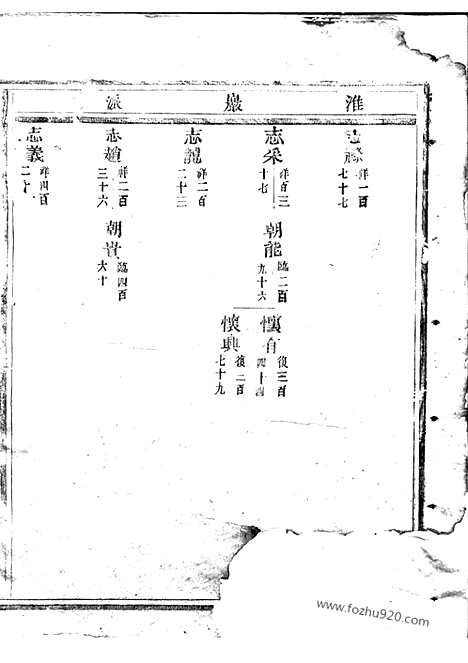 淮巖派
祥一百七十七
志采
祥百三十七
朝能
臨二百九十六
懷有
復三百四十四
懷興
復二百七十九
志龍
祥二百二十三
志趙
祥二百三十六
朝貴
臨四百六十
志義
祥四百
www.fozhu920.com